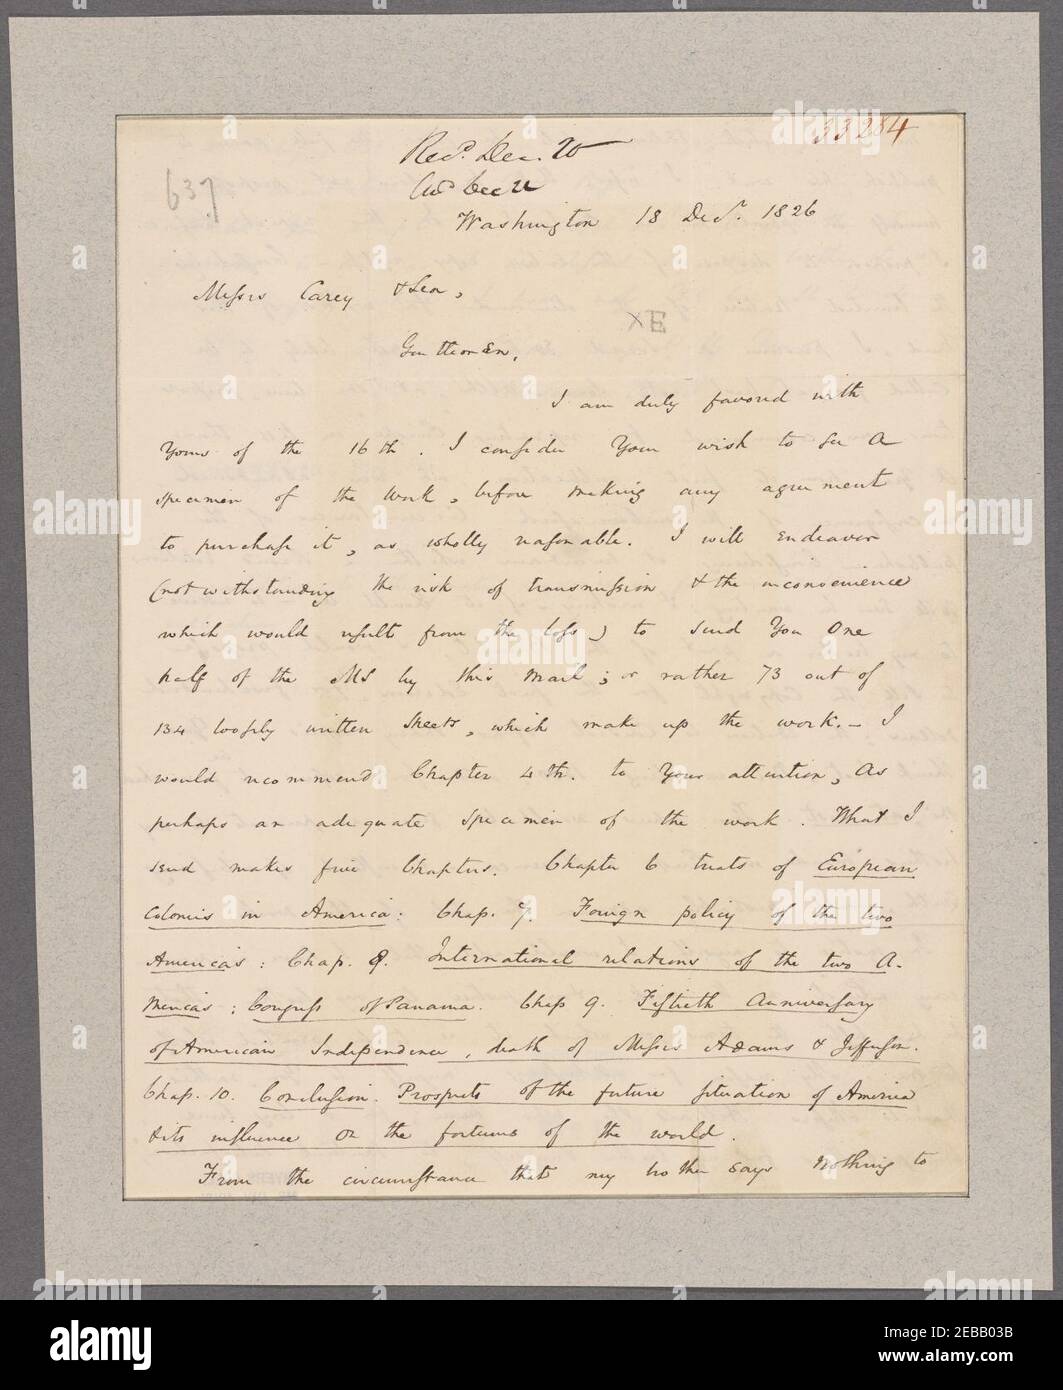 33284
Recd. Dec. 20
637
Washington 18 Decr. 1826
Messrs Carey & Lea,
XE
Gentlemen,
I am duly favored with
Yours of the 16th. I consider Your wish to see a
specimen of the Work, before making any agreement
to purchase it, as wholly reasonable. I will endeavor
(notwithstanding the risk of transmission & the inconvenience
which would result from the loss) to send You One
half of the MS by this mail; or rather 73 out of
134 loosely written sheets, which make up the work. – I
would recommend Chapter 4th. to Your attention, as
perhaps an adequate specimen of the work. What I
send makes five Chapters. Chapter 6 treats of European
Colonies in America: Chap. 7. Foreign policy of the two
Americas: Chap. 8. International relations of the two A-
mericas; Congress of Panama. Chap 9. Fiftieth Anniversary
of American Independence, death of Messrs Adams & Jefferson.
Chap. 10. Conclusion. Prospects of the future situation of America
& its influence on the fortunes of the world.
From the circumstance that my brother says nothing to
alamy
Image ID: 2EBB03B
www.alamy.com